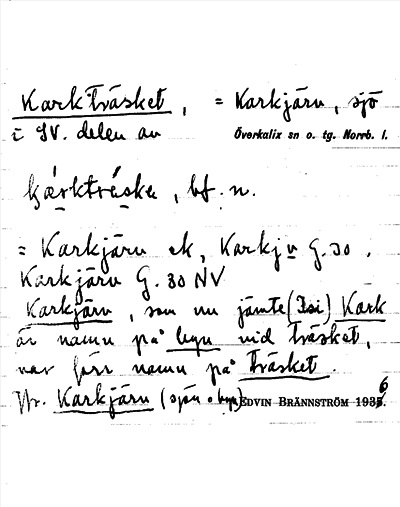 Karkträsket, = Karkjärv, sjö
i SV. delen av Överkalix sn o. tg. Norrb. l.
kærktrèskə, bf. n.
= Karkjärv ek, Karkjv G. 30.
Karkjärv G. 30 NV
Karkjärv, som nu jämte (Isi) Kark
är namn på byn vid träsket,
var förr namn på träsket.
Jfr. Karkjärv (sjön o byn) EDVIN BRÄNNSTRÖM 1936.